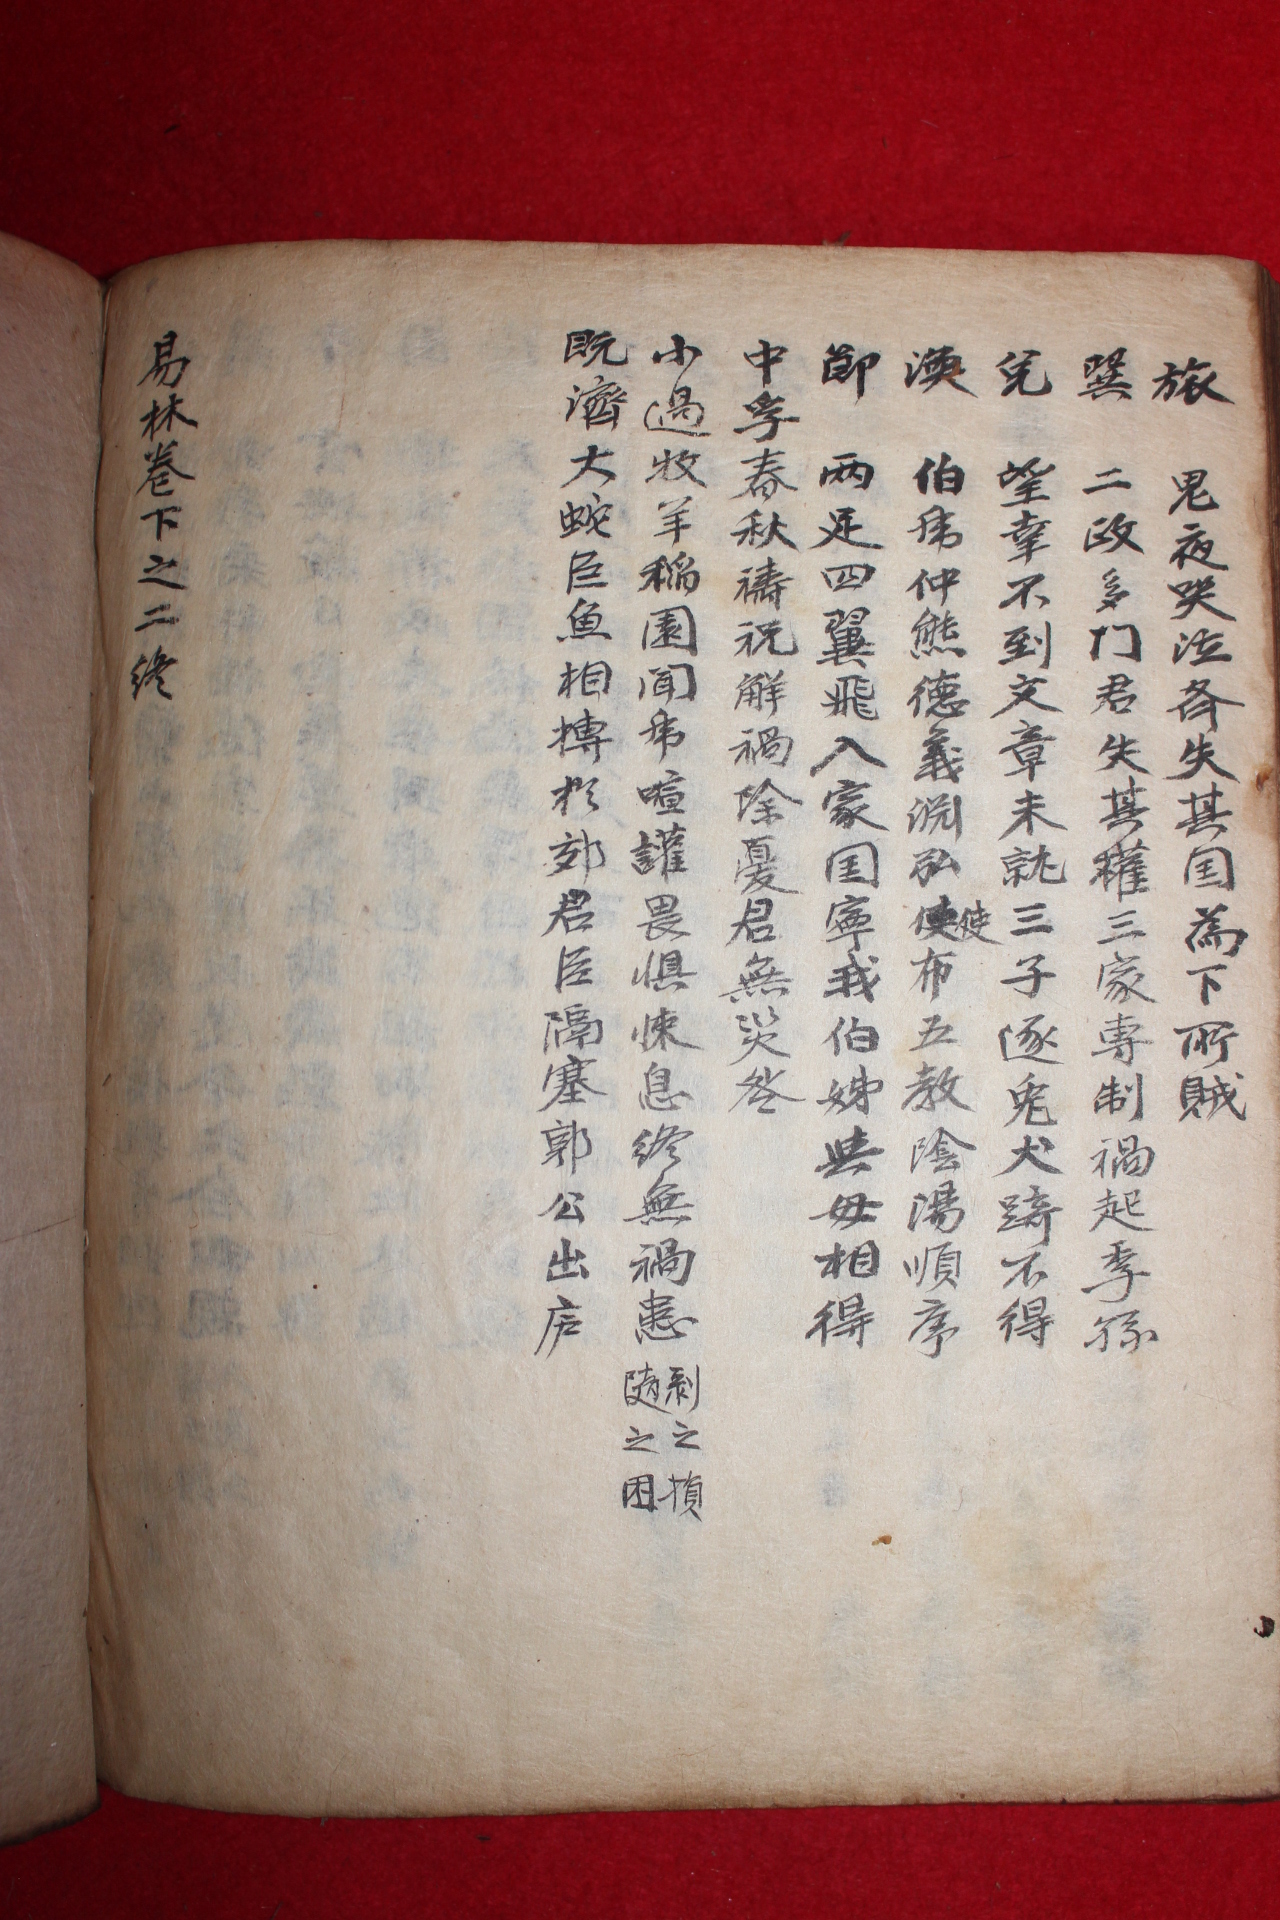 旅 鬼夜哭泣齊失其国為下所賊
巽 二政多門君失其權三家專制禍起季孫
兌 望幸不到文章未就三子逐兎犬踦不得
渙 伯帍仲熊德義淵弘使使布五教陰陽順序
節 兩足四翼飛入家囯寧我伯姊與母相得
中孚春秋禱祝解禍除憂君無災咎
小過牧羊稻園聞帍喧讙畏惧悚息終無禍患 剥之損
隨之困
旣濟大蛇巨魚相搏於郊君臣隔塞郭公出庐
易林卷下之二終